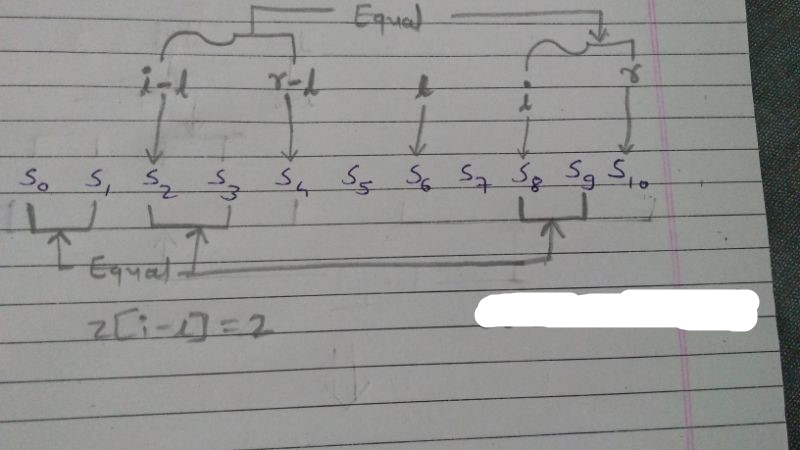 Equal
i-l r-l l i r
S0 S1 S2 S3 S4 S5 S6 S7 S8 S9 S10
Equal
z[i-l]=2